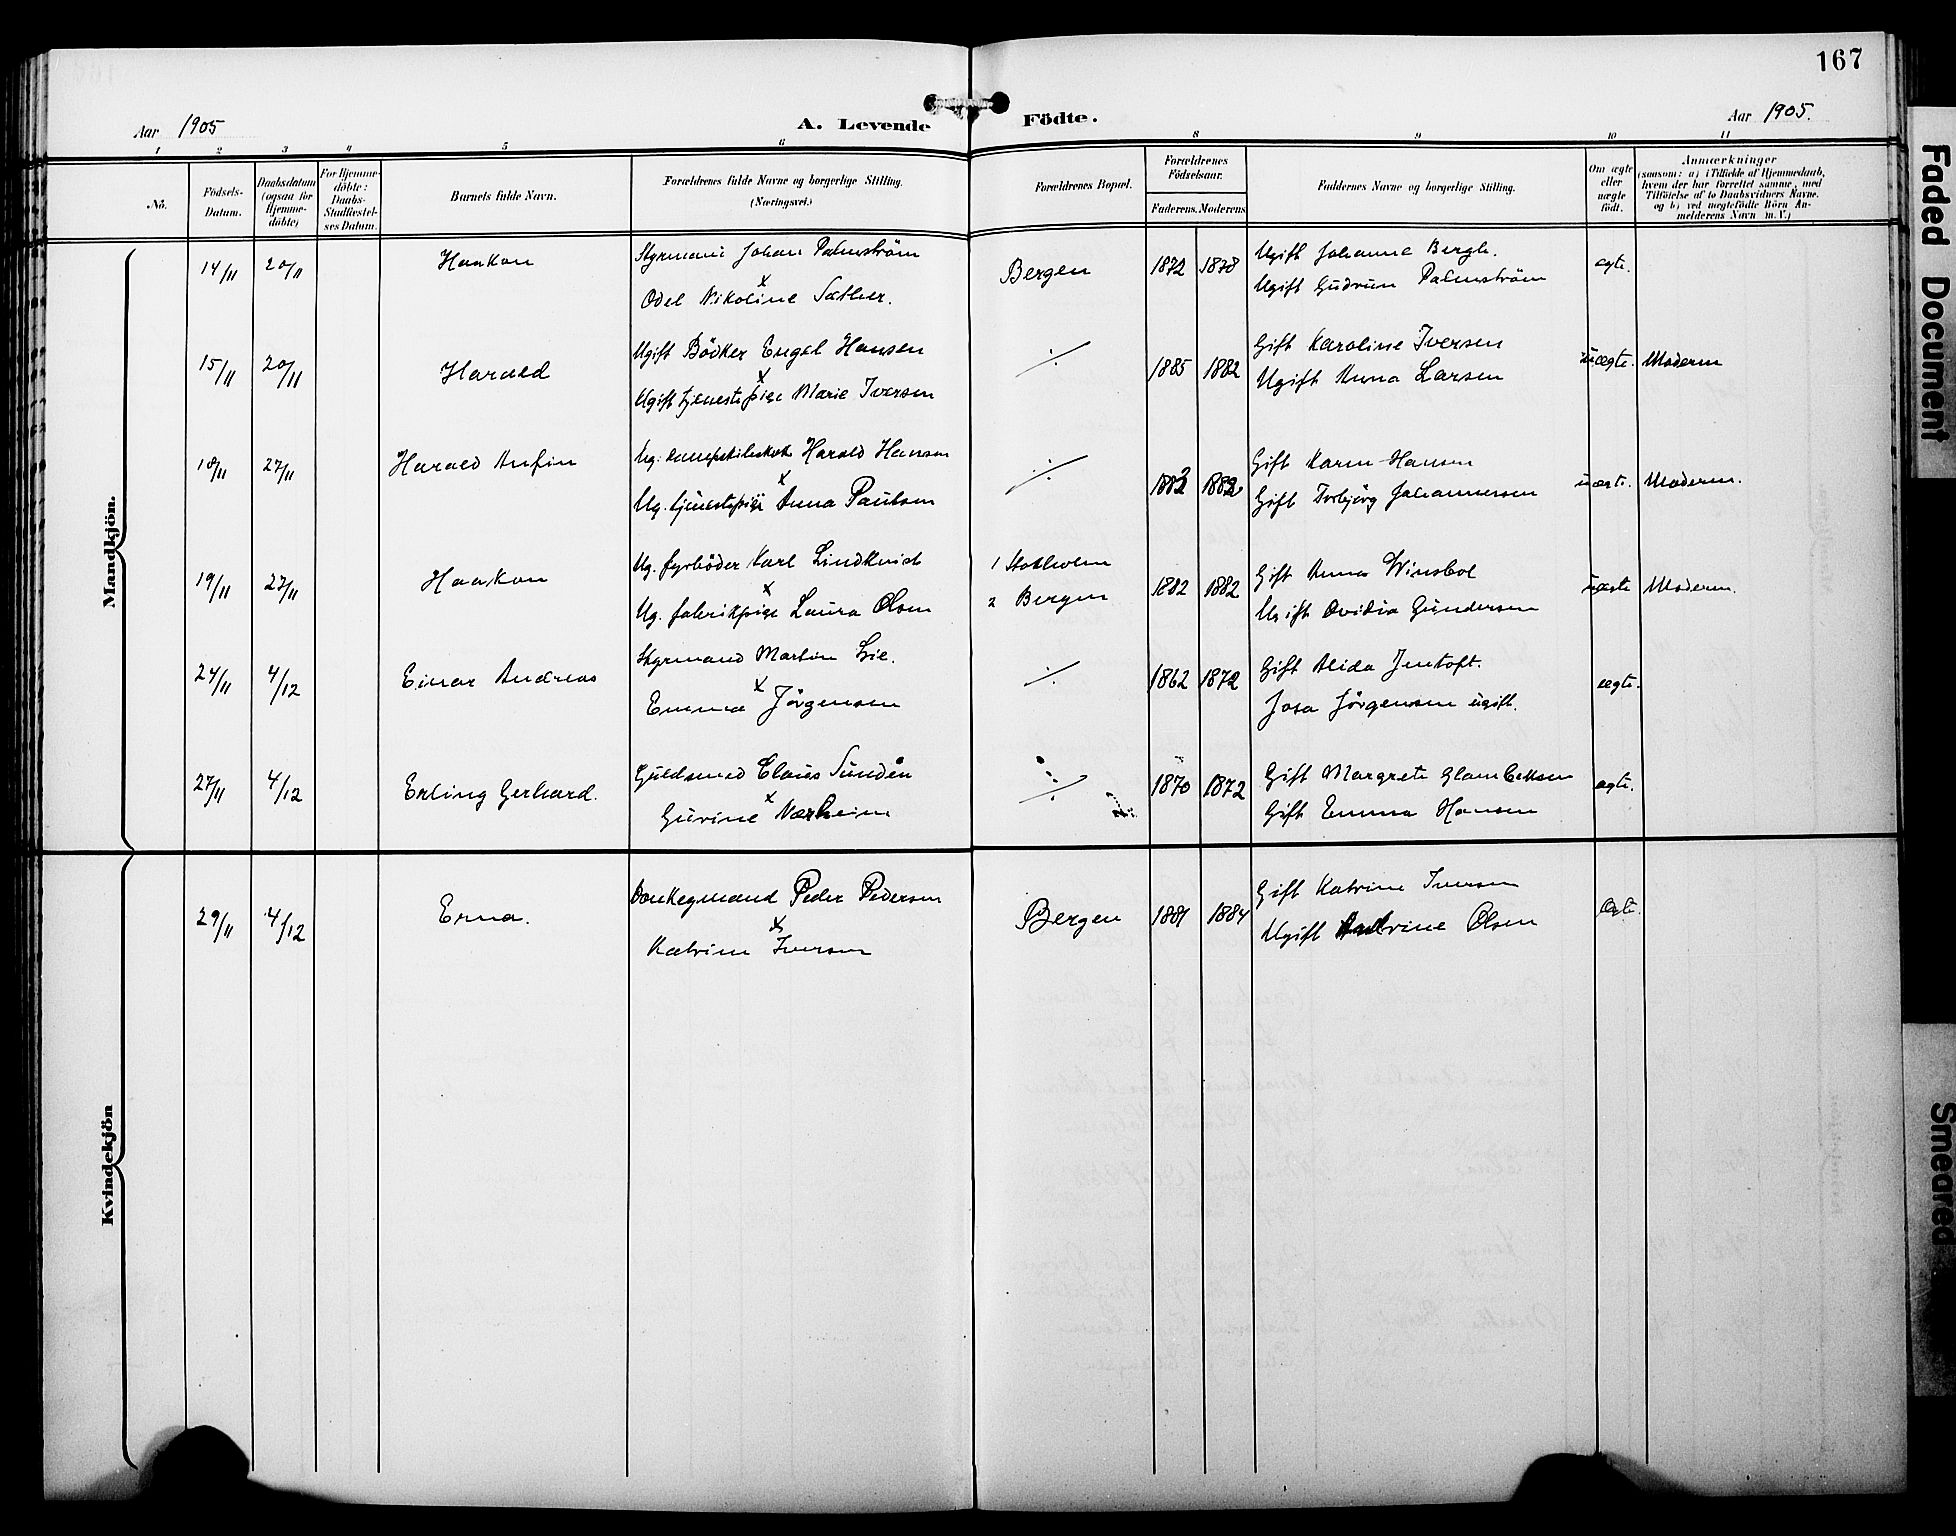 167
Aar 1905
A. Levende Födte.
Aar 1905.
1 2 3 4 5 6 8 9 10 11
No.
Födsels-Datum.
Daabsdatum (ogsaa for Hjemmedöbte)
For Hjemmedöbte: Daabs-Stadfæstelses Datum.
Barnets fulde Navn.
Forældrenes fulde Navne og borgerlige Stilling. (Næringsvei.)
Forældrenes Bopæl.
Forældrenes Födselsaar.
Faderens. Moderens
Faddernes Navne og borgerlige Stilling.
Om ægte eller uægte födt.
Anmærkninger
(saasom: a) i Tilfælde af Hjemmedaab, hvem der har forrettet samme, med Tilföielse af to Daabsvidners Navne. og b) ved uægtefödte Börn Anmelderens Navn m. V.)
Mandkjön.
14/11 20/11 Haakon Styrmand Johan Palmström Bergen 1872 1878 Ugift Johanne Bergh. ægte.
x
Odel Nikoline Sæther. Ugift Gudrun Palmström
15/11 20/11 Harald Ugift Bödker Engel Hansen ./. 1885 1882 Gift Karoline Iversen uægte. Moderen
x
Ugift tjenestepige Marie Iversen Ugift Anna Larsen
18/11 27/11 Harald Anfin Ug. Harald Hansen ./. 1882 1882 Gift Karen Hansen uægte. Moderen.
x
Ug. tjenestepige Anna Paulsen Gift Torbjörg Johannessen
19/11 27/11 Haakon Ug. fyrböder Karl Lindkvist 1 Stokholm 1882 1882 Gift Anna uægte Moderen.
x
Ug. fabrikpige Laura Olsen 2 Bergen Ugift Ovidia Gundersen
24/11 4/12 Einar Andreas Styrmand Martin Lie. ./. 1862 1872 Gift Alida Jentoft. ægte.
x
Emma Jörgensen Josa Jörgensen ugift.
27/11 4/12 Erling Gerhard. Guldsmed Claus Sundén ./. 1870 1872 Gift Margrete ægte.
x
Gurine Nærheim Gift Emma Hansen
Kvindekjön
29/11 4/12 Erna. Peder Pedersen Bergen 1881 1884 Gift Katrine Iversen ægte.
x
Katrine Iversen Ugift Olsen
Faded Document
Smeared